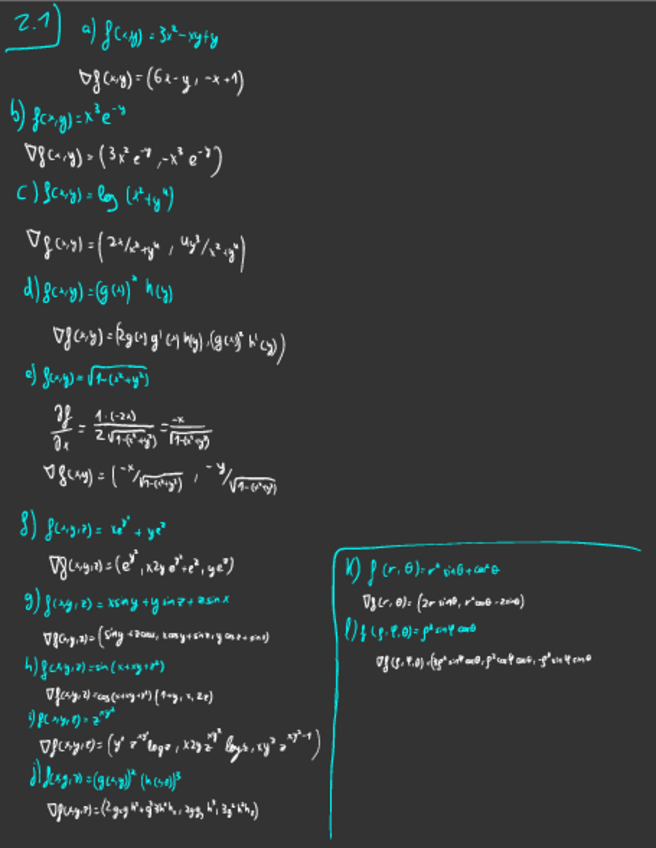 2.1) a) f(x,y) = 3x² - xy + y
∇f(x,y) = (6x - y, -x + 1)
b) f(x,y) = x³ e^{-y}
∇f(x,y) = (3x² e^{-y}, -x³ e^{-y})
c) f(x,y) = log (x² + y⁴)
∇f(x,y) = (2x/x²+y⁴, 4y³/x²+y⁴)
d) f(x,y) = (g(x))² h(y)
∇f(x,y) = (2g(x) g'(x) h(y), (g(x))² h'(y))
e) f(x,y) = √(1-(x²+y²))
∂f/∂x = 1·(-2x)/2√(1-(x²+y²)) = -x/√(1-(x²+y²))
∇f(x,y) = (-x/√(1-(x²+y²)), -y/√(1-(x²+y²))
f) f(x,y,z) = xe^{y²} + ye^z
∇f(x,y,z) = (e^{y²}, x2y e^{y²} + e^z, ye^z)
g) f(x,y,z) = x sin y + y sin z + z sin x
∇f(x,y,z) = (sin y + z cos x, x cos y + sin z, y cos z + sin x)
h) f(x,y,z) = sin (x + xy + z²)
∇f(x,y,z) = cos (x + xy + z²) (1+y, x, 2z)
i) f(x,y,z) = z^{xy²}
∇f(x,y,z) = (y² z^{xy²} log z, x2y z^{xy²} log z, xy² z^{xy²-1})
j) f(x,y,z) = (g(x,y))² (h(x,z))³
k) f(r, θ) = r² sin θ + cos² θ
l) f(ρ, φ, θ) = ρ² sin φ cos θ